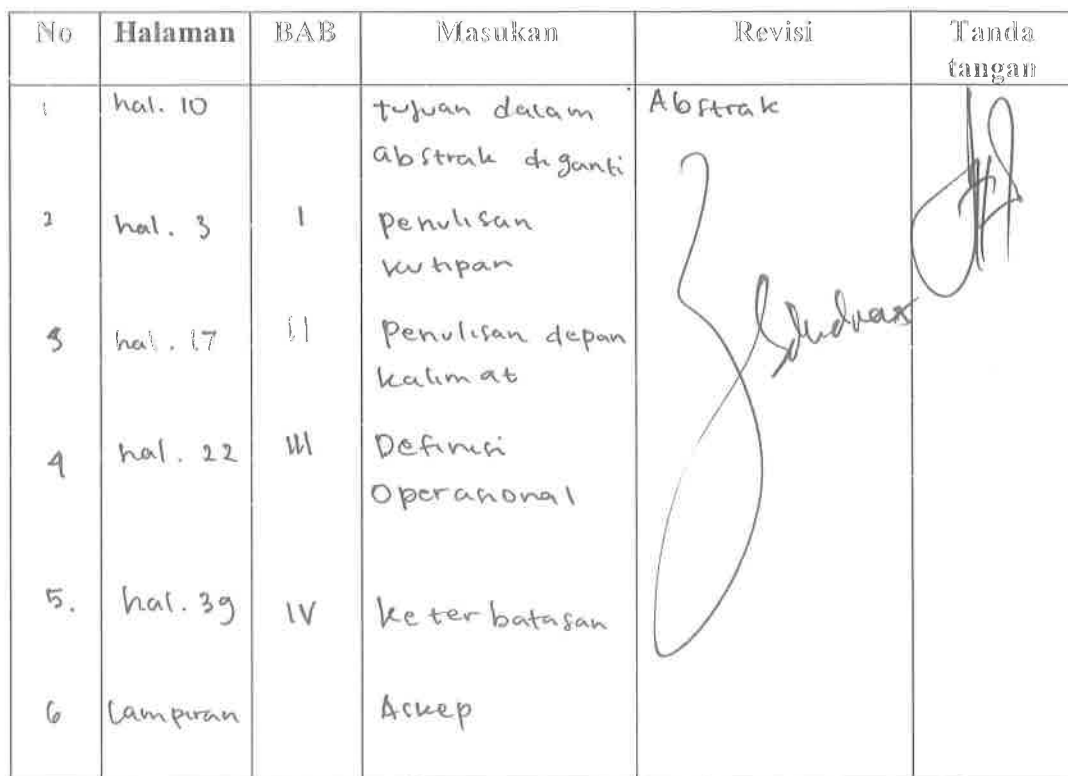 No Halaman BAB Masukan Revisi Tanda
tangan
1 hal. 10 tujuan dalam Abstrak
abstrak diganti
2 hal. 3 I penulisan
kutipan
3 hal. 17 II Penulisan depan
kalimat
4 hal. 22 III Definisi
Operasional
5. hal. 39 IV keterbatasan
6 Lampiran Askep